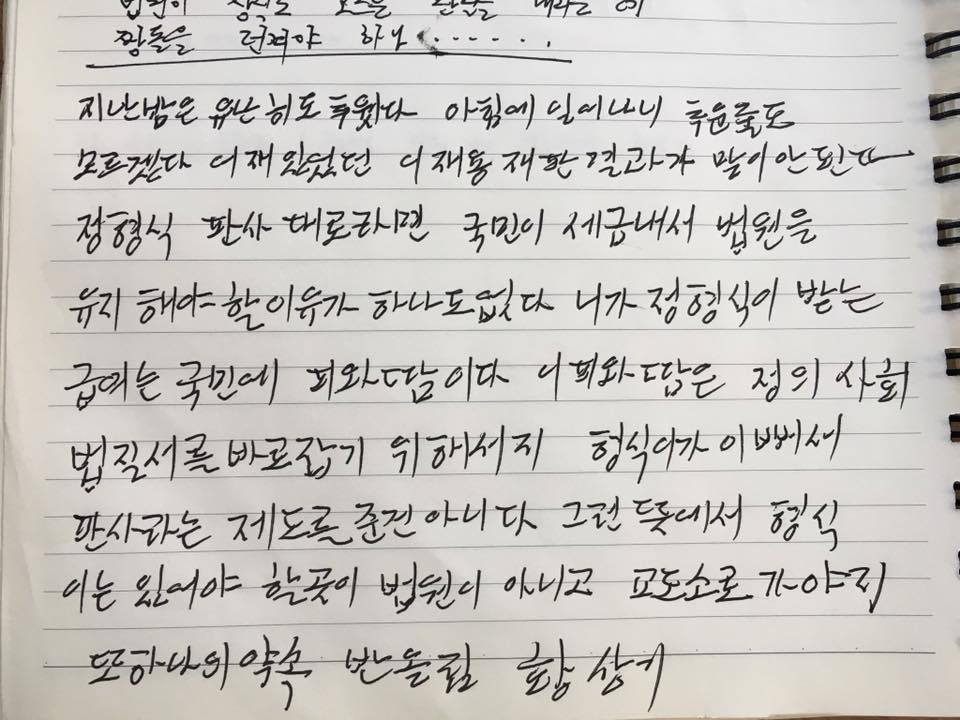 법원이 상식도
짱돌을 던져야 하나 .......
지난밤은 유난히도 추웠다 아침에 일어나니 추운줄도
모르겟다 어재있었던 이재용재판결과가 말이안된다
정형식 판사 대로라면 국민이 세금내서 법원을
유지 해야할이유가 하나도없다 니가 정형식이 받는
급여는 국민에 피와땀이다 이피와땀은 정의 사회
법질서를바로잡기 위해서지 형식이가이뻐서
판사라는 제도를준건아니다 그런뜻에서 형식
이는 있어야 할곳이 법원이 아니고 교도소로가야지
또하나의약속 반올림 황상기